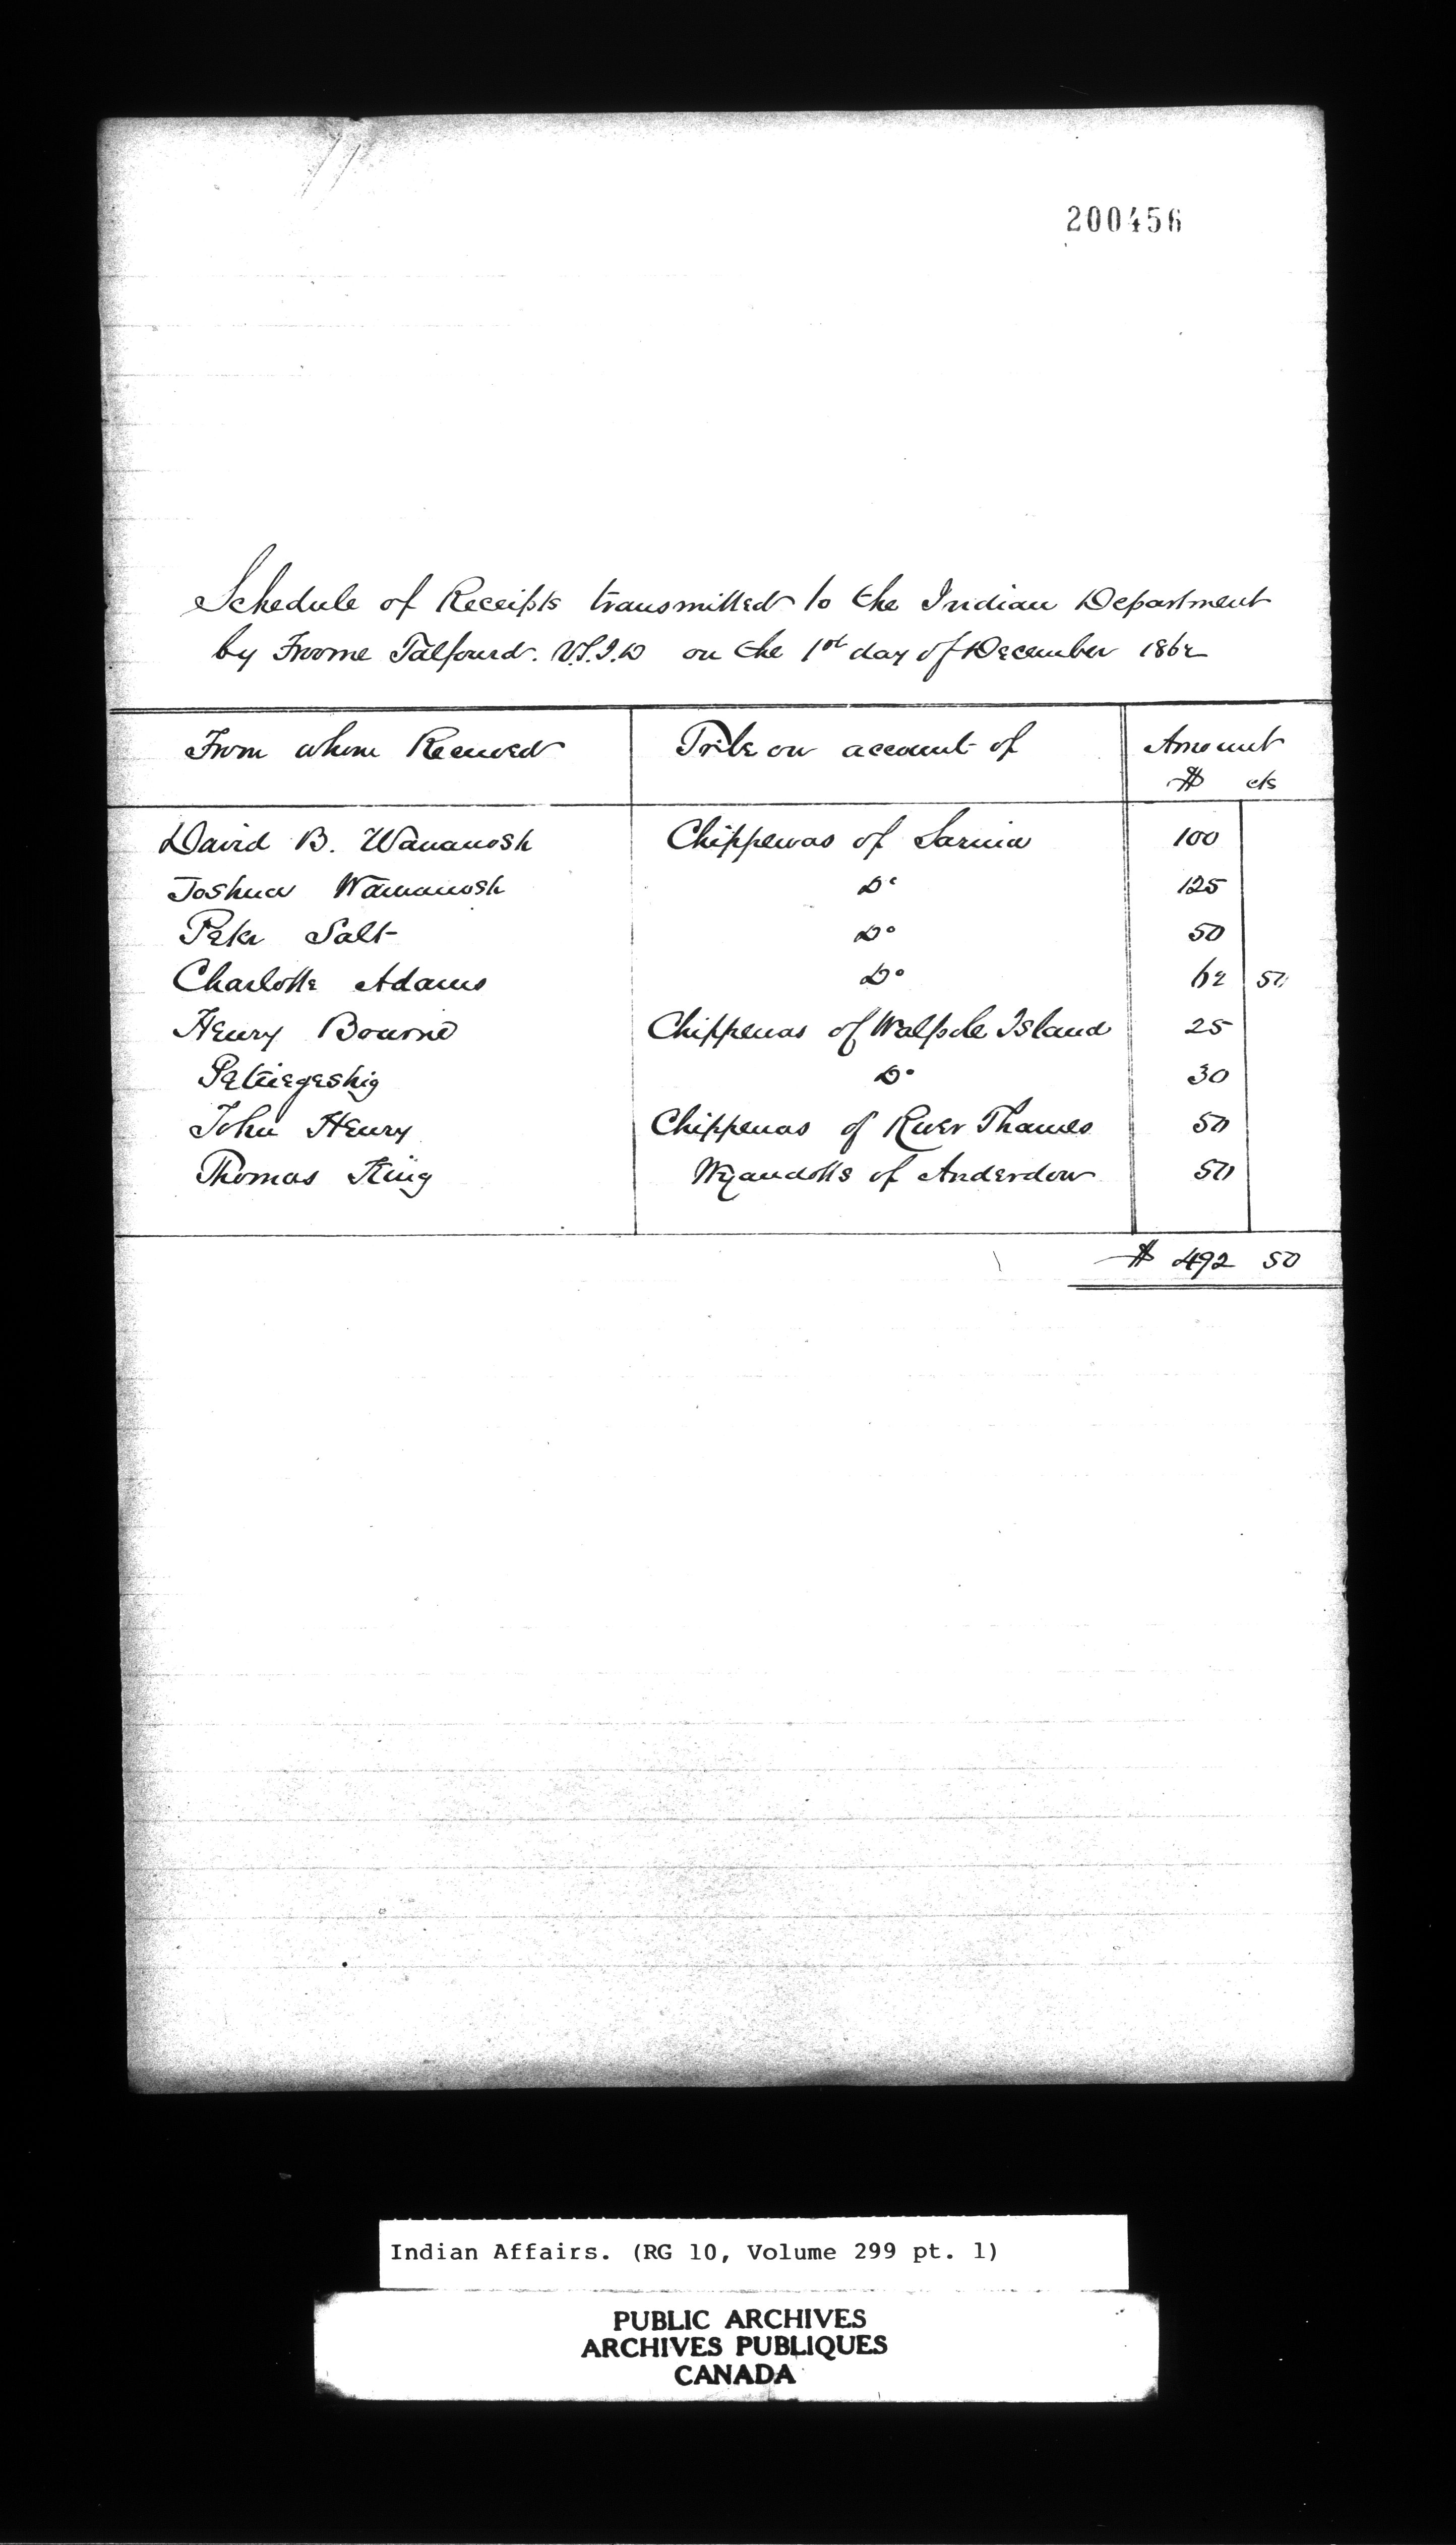 200456
Schedule of Receipts transmitted to the Indian Department
by Froome Talfourd. V.S.I.D on the 1st day of December 1862
From whom Received Tribe on account of Amount
$ cts
David B. Wawanosh Chippewas of Sarnia 100
Joshua Wawanosh Do 125
Peter Salt Do 50
Charlotte Adams Do 62 50
Henry Bourne Chippewas of Walpole Island 25
Petwegeshig Do 30
John Henry Chippewas of River Thames 50
Thomas King Wyandotts of Anderdon 50
$ 492 50
Indian Affairs. (RG 10, Volume 299 pt. 1)
PUBLIC ARCHIVES
ARCHIVES PUBLIQUES
CANADA